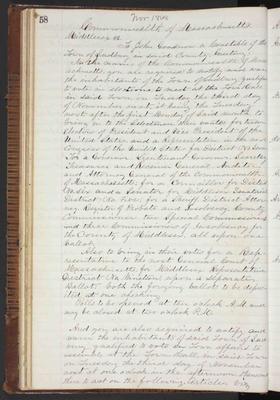 58
Nov. 1868
Commonwealth of Massachusetts
Middlesex ss.
To John Goodnow a Constable of the
Town of Sudbury in said County Greeting
In the name of the Commonwealth of Massa
chusetts you are required to notify and warn
the inhabitants of the Town of Sudbury qualified
to vote in elections to meet at the Town Hall
in said Town on Tuesday the third day
of November next it being the Tuesday
next after the first Monday of said month to
bring in to the Selectmen their votes for ten
Electors of President and Vice President of the
United States and a Representative in the
Congress of the United States for District No Seven
For a Governor Lieutenant Governor Secretary
Treasurer and Receiver General Auditor
and Attorney General of the Commonwealth
of Massachusetts for a Councillor for District
No Six and a Senator for Middlesex
District No for a Sheriff District Attor
ney Register of Probate and Insolvency County
Commissioner two Special Commissioners
and three Commissioners of Insolvency for
the County of Middlesex all upon one
ballot.
Also to bring in their votes for a Rep
resentative to the next General Court of
Massachusetts for Middlesex Representative
District No upon a separate
Ballot both the foregoing ballots to be depos
ited at one
Polls to be opened at ten o'clock A.M. and
may be closed at two o'clock P.M.
And you are also required to notify and
warn the inhabitants of said Town of Sud
bury qualified to vote in Town affairs to
assemble at the Town Hall in said Town
on Tuesday the third day of November
next at one o'clock in the afternoon then and
there to act on the following articles viz